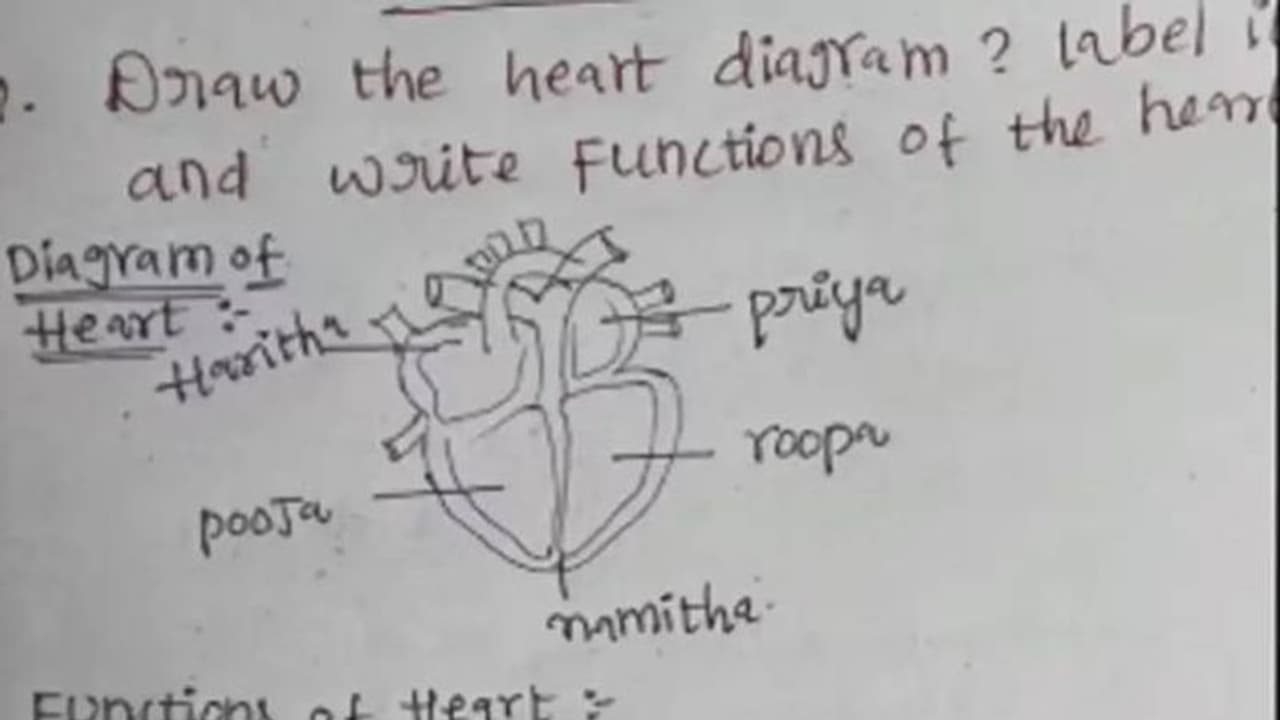 Draw the heart diagram ? label
and write Functions of the
Diagram of
Heart :-
Haritha
priya
roopa
pooja
namitha.
Functions of Heart :-